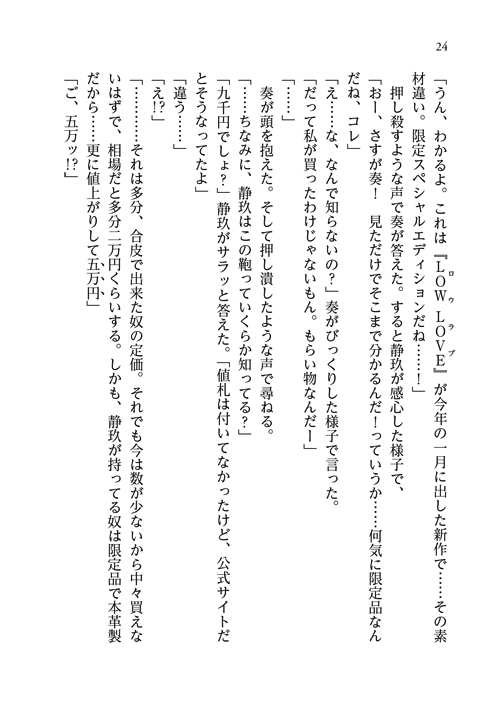 24
「うん、わかるよ。これは『LOW LOVE』が今年の一月に出した新作で……その素
ロウ ラブ
材違い。限定スペシャルエディションだね……！」
押し殺すような声で奏が答えた。すると静玖が感心した様子で、
「おー、さすが奏！　見ただけでそこまで分かるんだ！っていうか……何気に限定品なん
だね、コレ」
「え……な、なんで知らないの？」奏がびっくりした様子で言った。
「だって私が買ったわけじゃないもん。もらい物なんだー」
「……」
奏が頭を抱えた。そして押し潰したような声で尋ねる。
「……ちなみに、静玖はこの鞄っていくらか知ってる？」
「九千円でしょ？」静玖がサラッと答えた。「値札は付いてなかったけど、公式サイトだ
とそうなってたよ」
「違う……」
「え!?」
「…………それは多分、合皮で出来た奴の定価。それでも今は数が少ないから中々買えな
いはずで、相場だと多分二万円くらいする。しかも、静玖が持ってる奴は限定品で本革製
だから……更に値上がりして五万円」
「ご、五万ッ!?」